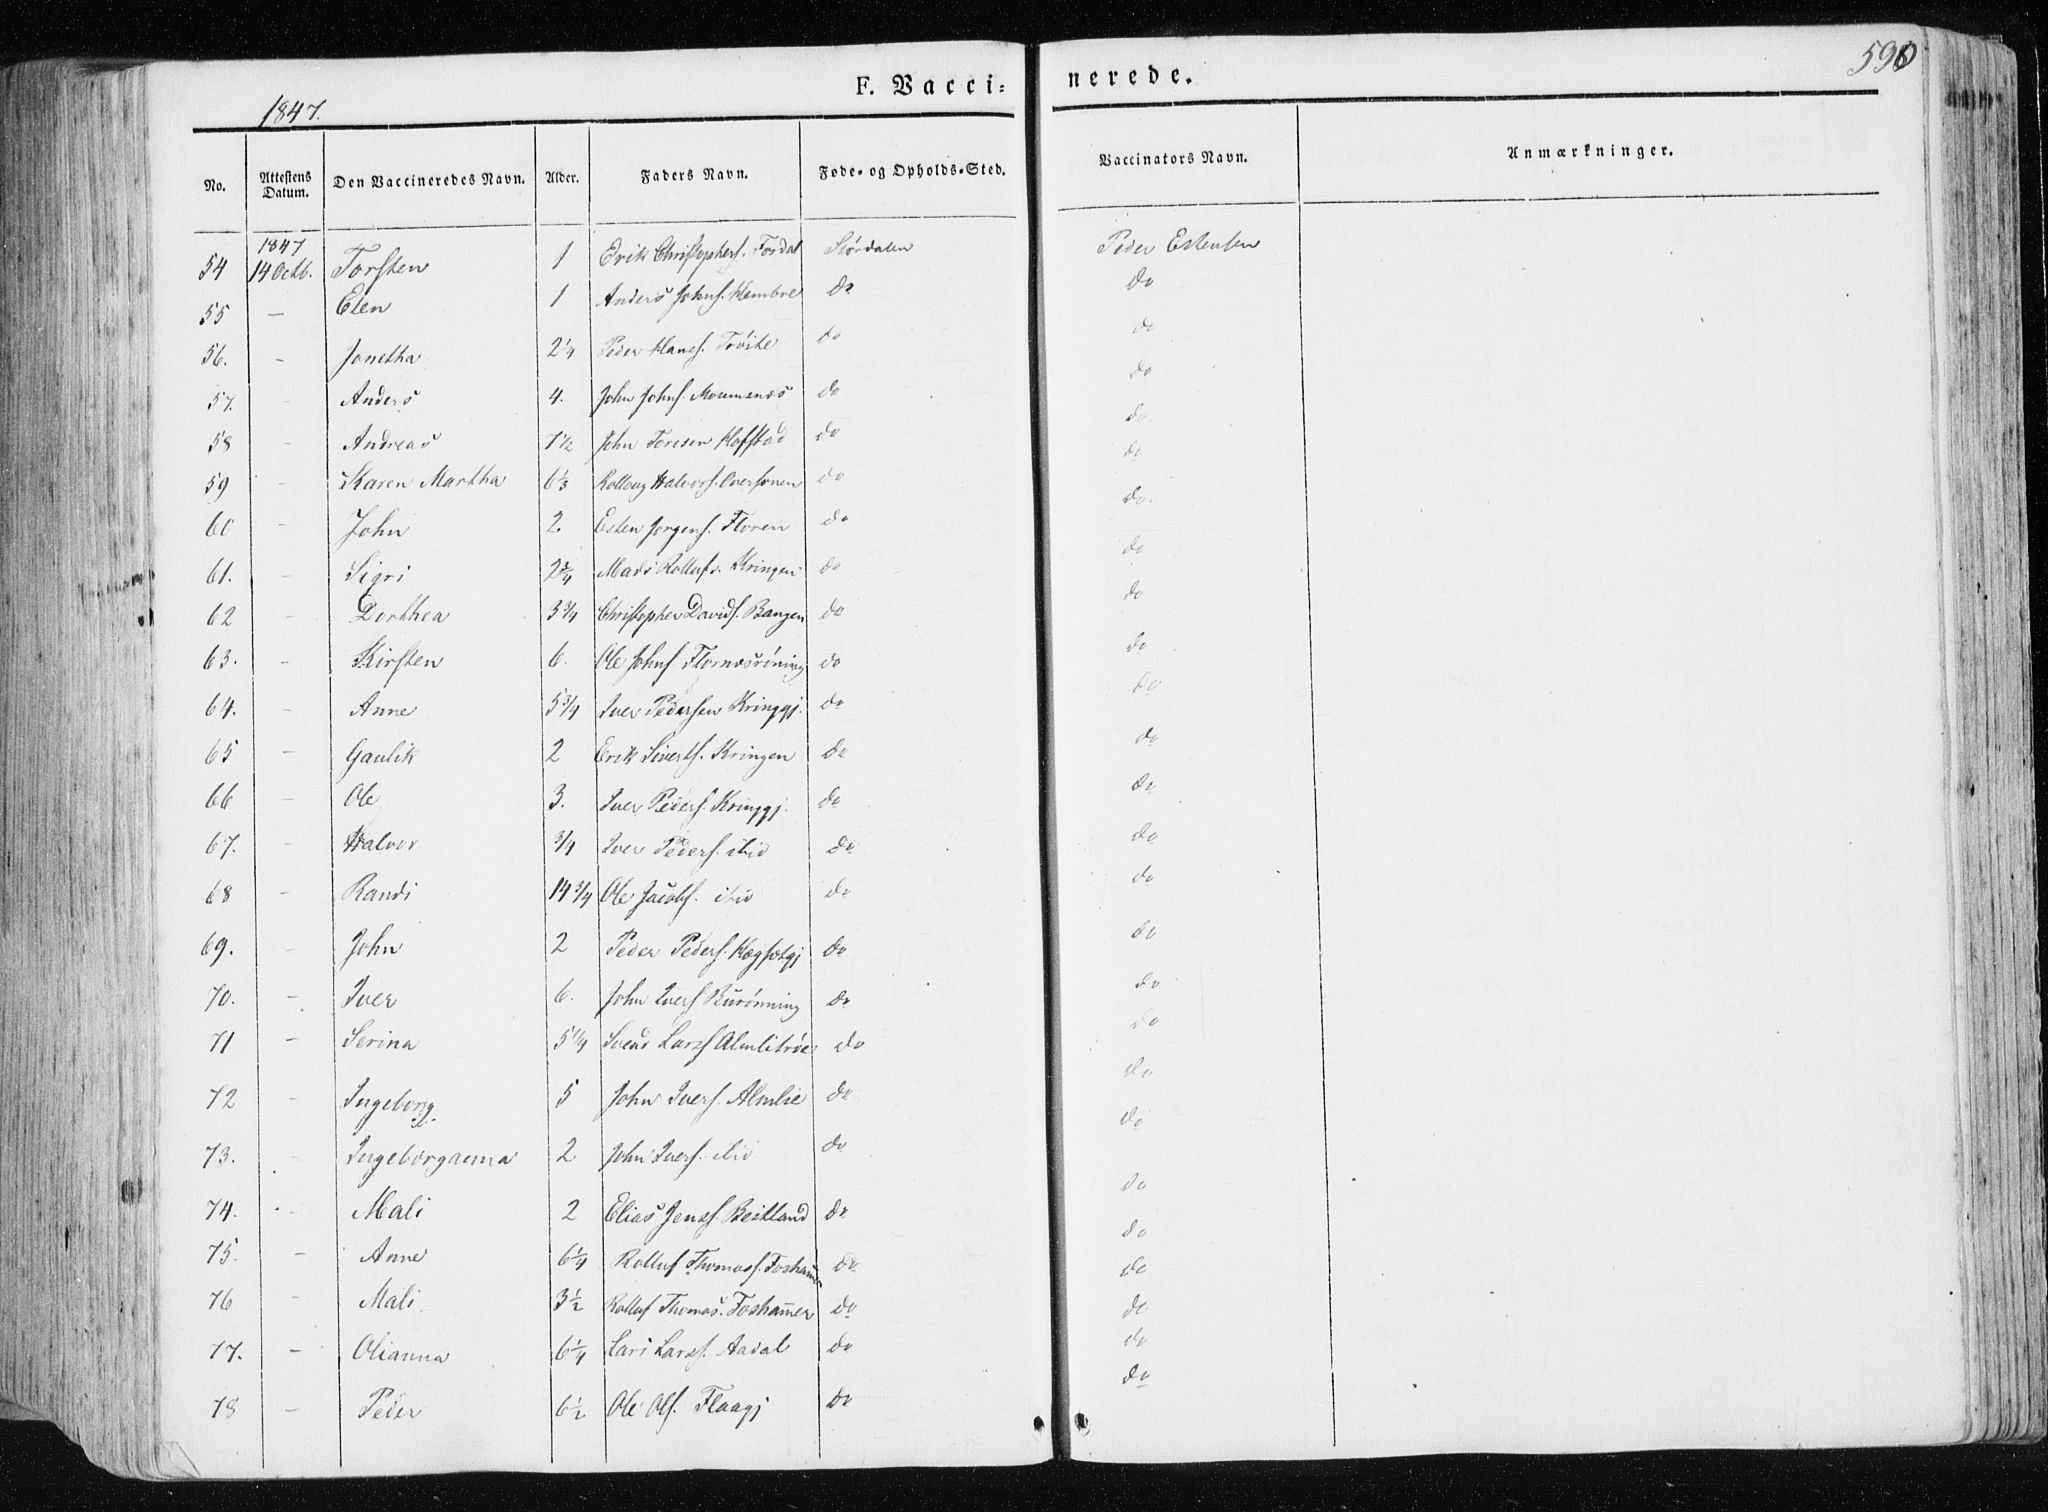 590
F. Vacci=nerede.
1847.
No. Attestens Datum. Den Vaccineredes Navn. Alder. Faders Navn. Føde= og Opholds=Sted. Vaccinators Navn. Anmærkninger.
1847
54 14 Octb. Torsten 1 Erik Christophers. Fordal Størdalen Peder Estensen
55 – Elen 1 Anders Johns. Hembre do do
56. – Jonetha 2 1/4 Peder Hans. Trøite do do
57. – Anders 4. John Johns. Moumsnes do do
58 – Andreas 7 1/2 John Toresen Hofstad do do
59 – Karen Martha 6 1/3 Rollaug Halvors. do do
60 – John 2. Esten Jorgens. Floren do do.
61. – Sigri 2 3/4 Mads Rollufs. Kringen do do
62 – Dorthea 3 3/4 Christopher Davids. Bangen do do
63. – Kirsten 6. Ole Johns Flornesrøning do do
64. – Anne 5 3/4 Iver Pedersen Kringgj. do do
65 – Gaulik 2 Erik Siverts. Kringen do do
66 – Ole 3. Iver Peders. Kringgj. do do
67. – Halvor 3/4 Iver Peders. ibid do do
68 – Randi 14 3/4 Ole Jacobs. ibid do do
69. – John 2 Peder Peders. do do
70. – Iver 6. John Ivers Burønning do do
71 – Serina 5 1/4 Svend Lars Almlitrøe do do
72 – Ingeborg 5 John Ivers. Almlie do do
73. – Ingeborganna 2 John Ivers. ibid do do
74. – Mali 2 Elias Jens. Beitland do do
75. – Anne 6 1/4 Rolluf Thomass. Foshamer do do
76 – Mali 3 1/2 Rolluf Thomas. Foshamer do do
77. – Olianna 6 1/4 Lars Lars. Aadal do do
78 – Peder 6 1/2 Ole Ols. Flaagj do do